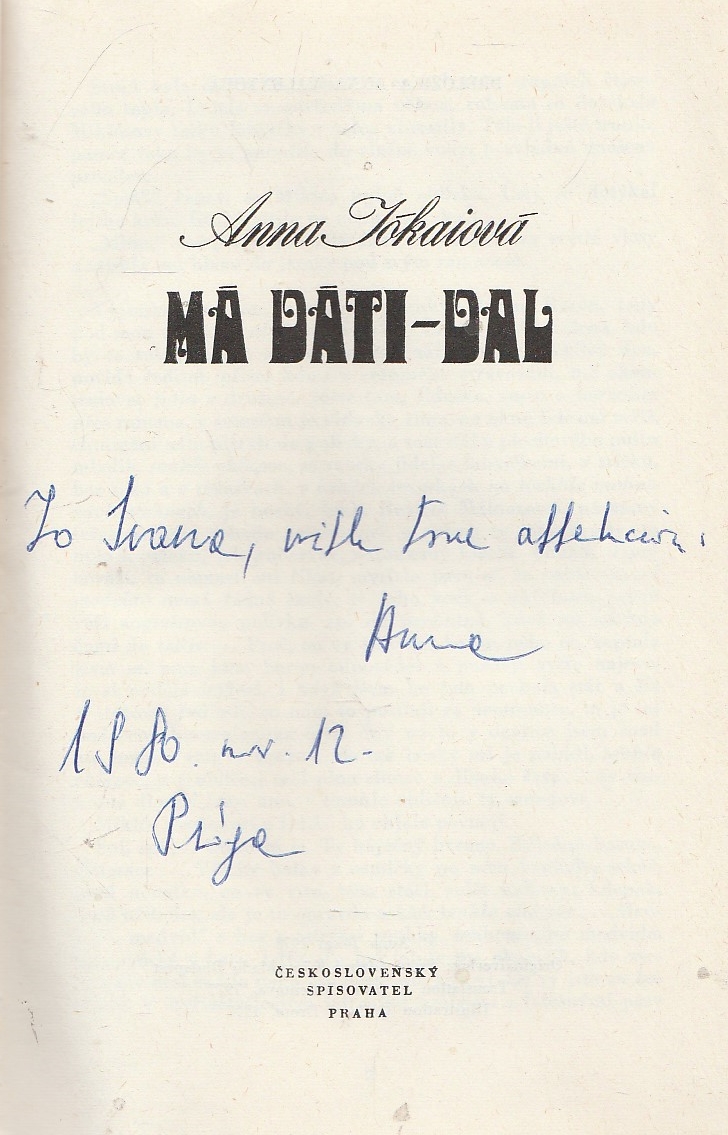 Anna Jókaiová
MÁ DÁTI–DAL
To Ivana, with true affekcion.
Anna
1980. nov. 12.
Prága
ČESKOSLOVENSKÝ
SPISOVATEL
PRAHA